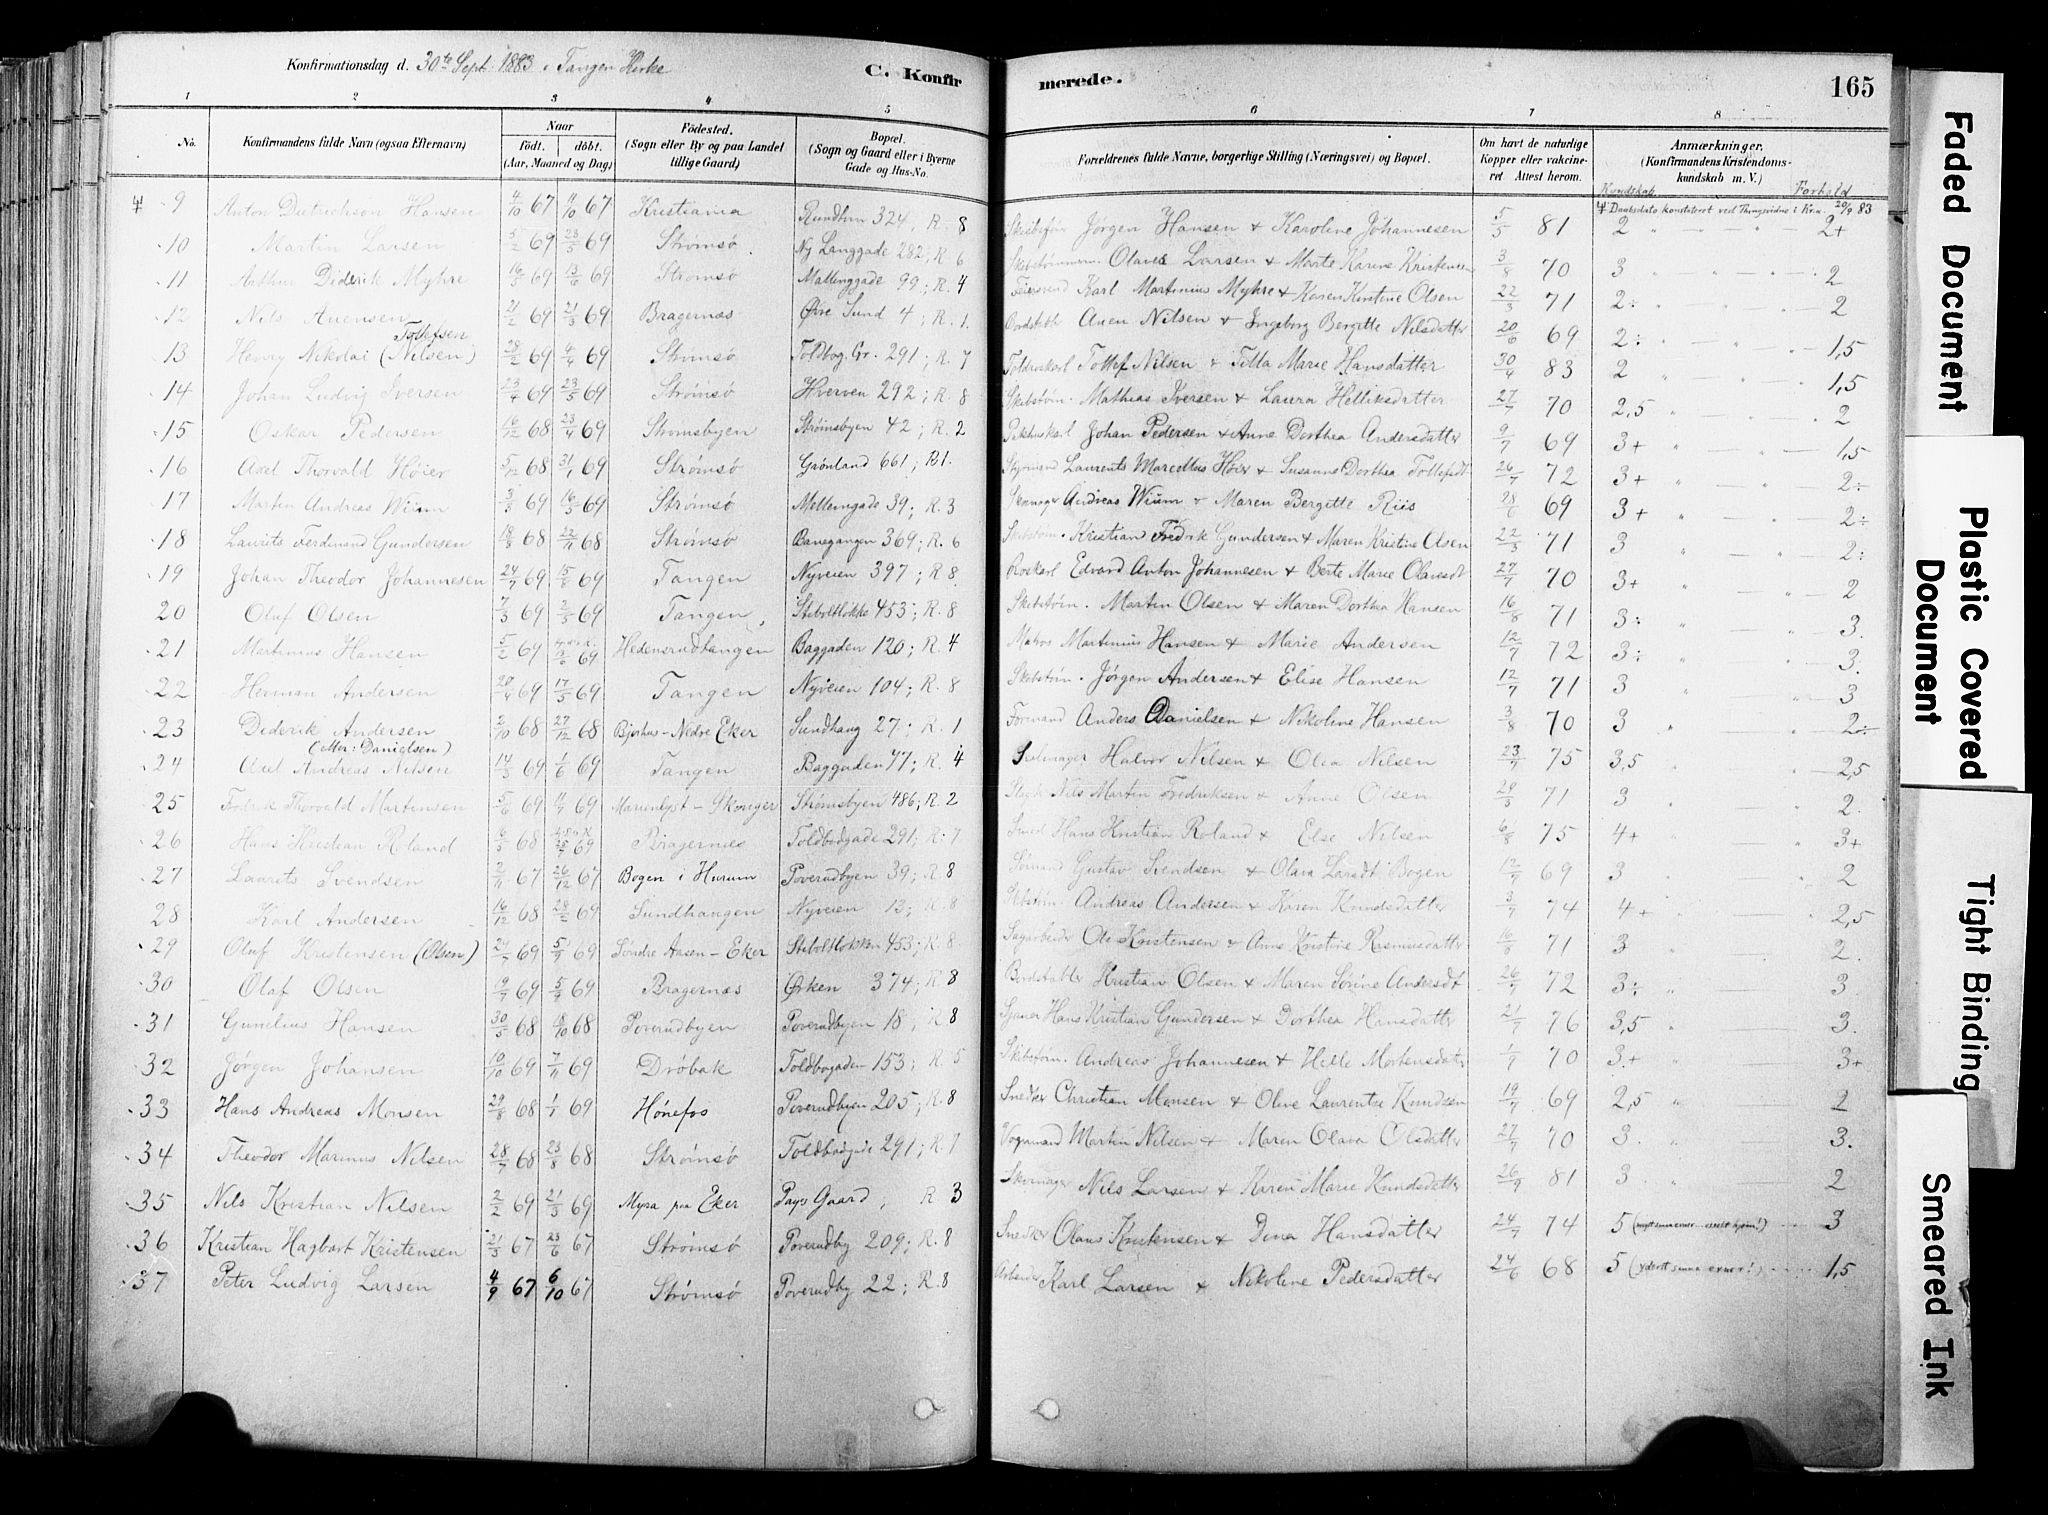 Konfirmationsdag d. 30te Sept. 1883 i Tangen Kirke
C. Konfirmerede.
165
1 2 3 4 5 6 7 8
No.
Konfirmandens fulde Navn (ogsaa Efternavn)
Naar
födt. döbt.
(Aar, Maaned og Dag)
Födested.
(Sogn eller By og paa Landet tillige Gaard)
Bopæl.
(Sogn og Gaard eller i Byerne Gade og Hus-No.
Forældrenes fulde Navne, borgerlige Stilling (Næringsvei) og Bopæl.
Om havt de naturlige Kopper eller vakcineret Attest herom.
Anmærkninger.
(Konfirmandens Kristendomskundskab m. V.)
Kundskab Forhold
9 Anton Dietrichson Hansen 4/10 67 11/10 67 Kristiania Rundtom 324, R. 8 Jørgen Hansen & Karoline Johannesen 5/5 81 2 2+
10 Martin Larsen 5/2 69 23/5 69 Strømsø Ny Langgade 282; R. 6 Olaves Larsen & Marte Karine Kristensen 3/8 70 3 2
11 Arthur Diderik Myhre 16/5 69 13/6 69 Strømsø Mellemgade 99; R. 4 Karl Martinius Myhre & Karen Kirstine Olsen 22/3 71 2÷ 2
12 Nils Auensen 21/2 69 21/3 69 Bragernæs Øvre Sund 4; R. 1. Auen Nilsen & Ingeborg Bergitte Nilsdatter 20/6 69 2÷ 1,5
13 Henry Nikolai Tollefsen (Nilsen) 28/2 69 4/4 69 Strømsø Toldbog. Gr. 291; R. 7 Tollef Nilsen & Titta Marie Hansdatter 30/4 83 2 1,5
14 Johan Ludvig Iversen 23/4 69 23/5 69 Strømsø Hverven 292; R. 8 Skibstøm. Mathias Iversen & Laura Helliksdatter 27/7 70 2,5 2
15 Oskar Pedersen 16/12 68 23/4 69 Strømsbyen Strømsbyen 42; R. 2 Pakhuskarl Johan Pedersen & Anne Dorthea Andersdatter 9/7 69 3+ 1,5
16 Axel Thorvald Höier 5/12 68 31/1 69 Strømsø Grønland 661; B1. Styrmand Laurents Marcellus Höier & Susanne Dorthea Tollefsdt 26/7 72 3+ 2÷
17 Martin Andreas Wium 3/3 69 16/5 69 Strømsø Mellemgade 39; R. 3 Andreas Wium & Maren Bergitte Riis 28/6 69 3+ 2÷
18 Laurits Ferdinand Gundersen 18/9 68 22/11 68 Strømsø Banegangen 369; R. 6 Skibstøm. Kristian Fredrik Gundersen & Maren Kristine Olsen 22/3 71 3 2÷
19 Johan Theodor Johannesen 24/7 69 15/8 69 Tangen Nyveien 397; R. 8 Roskarl Edvard Anton Johannesen & Berte Marie Olavesdt 27/7 70 3+ 2
20 Oluf Olsen 7/3 69 2/5 69 Tangen Stiboltløkke 453; R. 8 Skibstøm. Martin Olsen & Maren Dorthea Hansen 16/8 71 3÷ 3.
21 Martinius Hansen 5/2 69 69 Hedensrudtangen Baggaden 120; R. 4 Matros Martinius Hansen & Marie Andersen 12/7 72 3÷ 3.
22 Herman Andersen 20/4 69 17/5 69 Tangen Nyveien 104; R. 8 Skibstøm. Jørgen Andersen & Elise Hansen 12/7 71 3 3
23 Diderik Andersen (eller: Danielsen) 2/10 68 27/12 68 Bjørhus - Nedre Eker Sundhaug 27; R. 1 Formand Anders Danielsen & Nikoline Hansen 3/8 70 3 2÷
24 Axel Andreas Nilsen 14/3 69 1/6 69 Tangen Baggaden 77; R. 4 Halvor Nilsen & Olea Nilsen 23/7 75 3,5 2,5
25 Fredrik Thorvald Martinsen 5/6 69 11/7 69 Marienlyst - Skouger Strømsbyen 486; R. 2 Nils Martin Fredriksen & Anne Olsen 29/3 71 3 2.
26 Hans Kristian Roland 68 69 Bragernæs Toldbodgade 291; R. 7 Smed Hans Kristian Roland & Else Nilsen 6/8 75 4+ 3+
27 Laurits Svendsen 2/11 67 26/12 67 Bogen i Hurum Poverudbyen 39; R. 8 Sømand Gustav Svendsen & Olava Larsdt Bogen 12/9 69 3 2
28 Karl Andersen 16/12 68 28/2 69 Sundhaugen Nyveien 13; R. 8 Skibstøm. Andreas Andersen & Karen Knudsdatter 3/7 74 4+ 2,5
29 Oluf Kristensen (Olsen) 24/7 69 5/9 69 Søndre Aasen - Eker Stiboltløkken 453; R. 8 Sagarbeider Ole Kristensen & Anne Kristine Rasmusdatter 16/8 71 3 2.
30 Olaf Olsen 19/7 69 5/9 69 Bragernæs Ørken 374; R. 8 Bordstabler Kristian Olsen & Maren Sørine Andersdt 26/7 72 3÷ 3
31 Gunelius Hansen 30/5 68 18/10 68 Poverudbyen Poverudbyen 18; R. 8 Hans Kristian Gundersen & Dorthea Hansdatter 21/7 76 3,5 3.
32 Jørgen Johansen 10/10 69 7/11 69 Drøbak Toldbogaden 153; R. 5 Skibstøm. Andreas Johannesen & Helle Mortensdatter 1/7 70 3+ 3+
33 Hans Andreas Monsen 29/8 68 1/1 69 Hønefos Poverudbyen 205; R. 8 Snedker Christian Monsen & Oline Laurentse Knudsen 19/7 69 2,5 2
34 Theodor Marinus Nilsen 28/7 68 23/8 68 Strømsø Toldbodgade 291; R. 7 Vognmand Martin Nilsen & Maren Olava Olsdatter 27/7 70 3. 3.
35 Nils Kristian Nilsen 2/2 69 21/3 69 Myra paa Eker Pays Gaard; R 3 Skomager Nils Larsen & Karen Marie Knudsdatter 26/9 81 3 2
36 Kristian Hagbart Kristensen 21/3 67 23/6 67 Strømsø Poverudby 209; R. 8 Snedker Olaus Kristensen & Dina Hansdatter 24/7 74 5 3
37 Peter Ludvig Larsen 4/9 67 6/10 67 Strømsø Poverudby 22; R. 8 Arbeider Karl Larsen & Nikoline Pedersdatter 24/6 68 5 1,5
Faded Document
Plastic Covered Document
Tight Binding
Smeared Ink